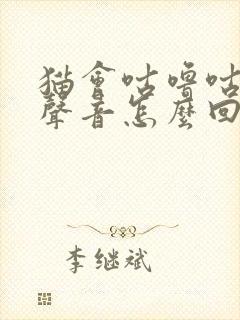 猫會咕嚕咕
聲音怎麼回
李继斌